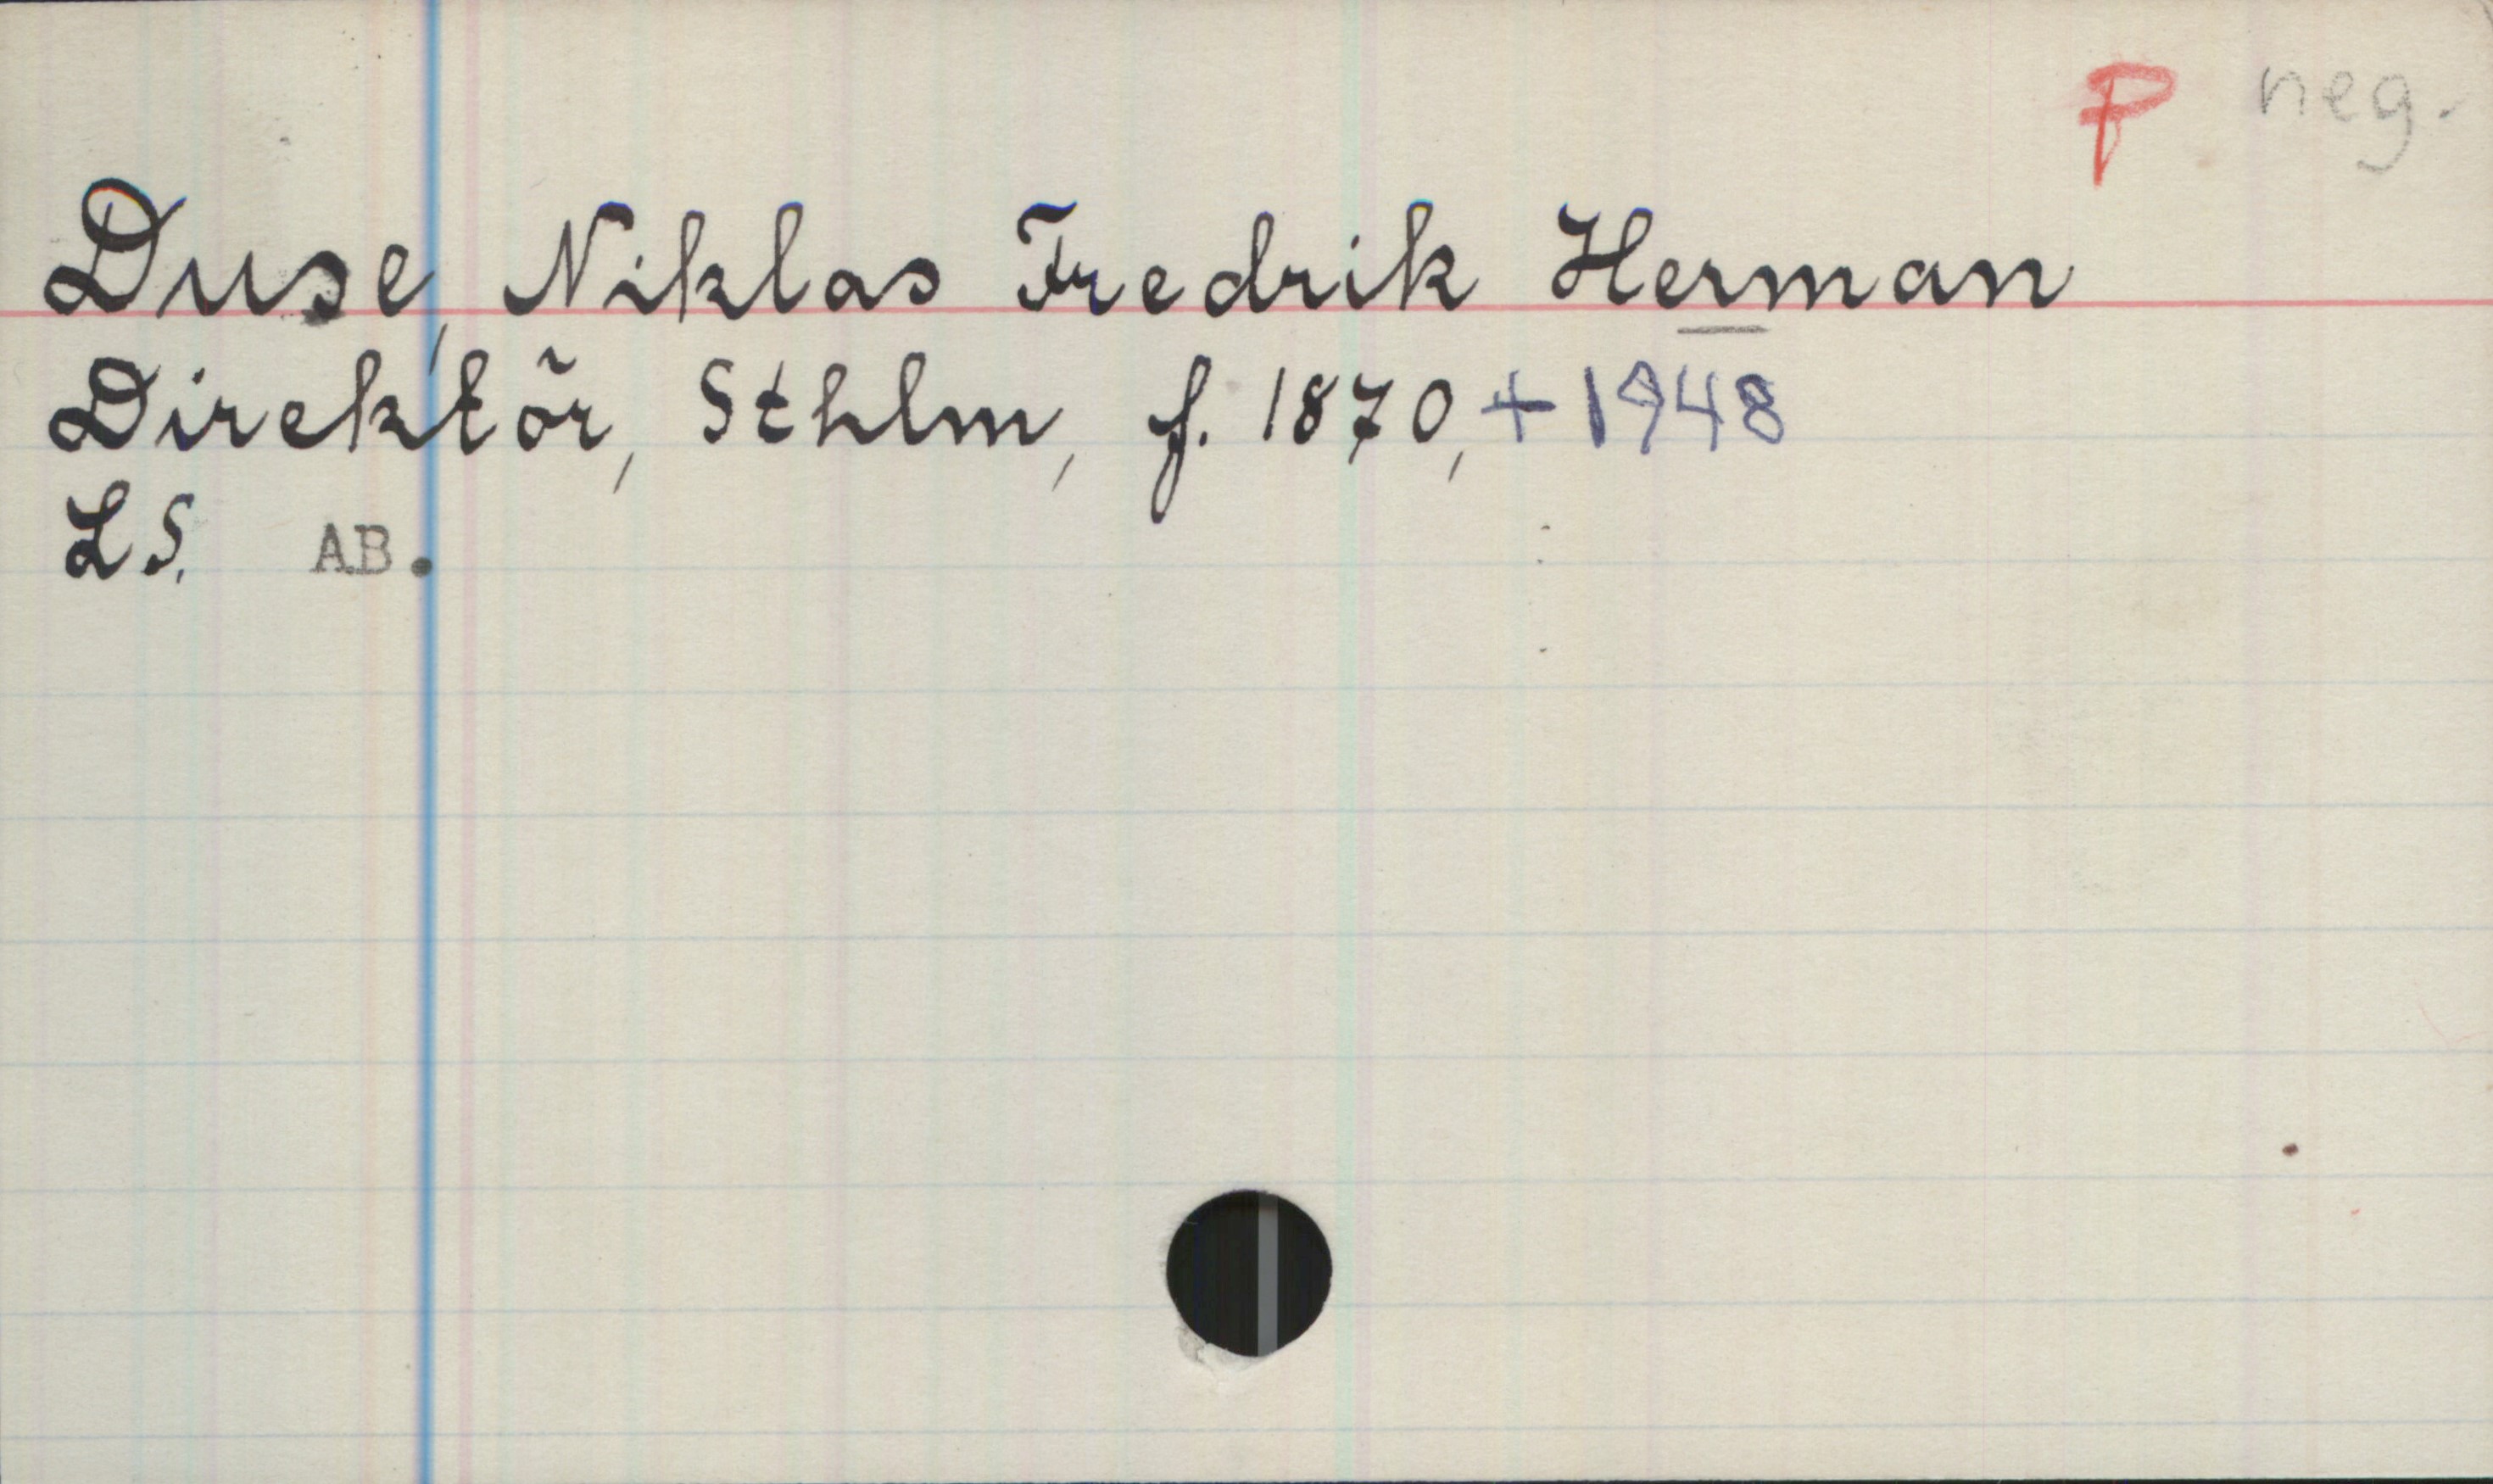 P neg.
Duse, Niklas Fredrik Herman
Direktör, Sthlm, f. 1870, + 1948
LS. AB.